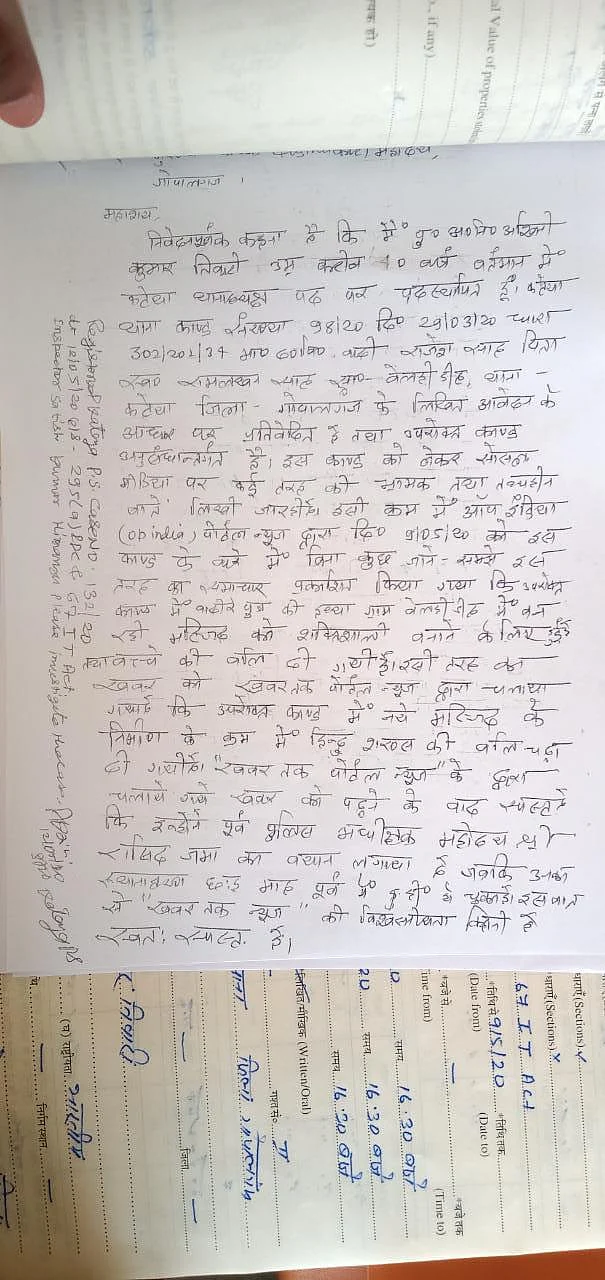 गोपालगंज ।
महाशय,
निवेदनपूर्वक कहना है कि मैं पु० अ०नि० अश्विनी
कुमार तिवारी उम्र करीब 40 वर्ष वर्तमान में
कटेया थानाध्यक्ष पद पर पदस्थापित हूँ। कटेया
थाना काण्ड संख्या 98/20 दि० 29/03/20 धारा
302/201/34 भा० द०वि० वादी राजेश साह पिता
स्व० रामलखन साह सा०- बेलहीडीह, थाना -
कटेया जिला - गोपालगंज के लिखित आवेदन के
आधार पर प्रतिवेदित है तथा उपरोक्त काण्ड
अनुसंधानान्तर्गत है। इस काण्ड को लेकर सोसल
मीडिया पर कई तरह की भ्रामक तथा तथ्यहीन
बातें लिखी जा रही है। इसी क्रम में ऑप इंडिया
(opindia) पोर्टल न्यूज द्वारा दि० 9/05/20 को इस
काण्ड के बारे में बिना कुछ जाने-समझे इस
तरह का समाचार प्रकाशित किया गया कि उपरोक्त
काण्ड में वादी के पुत्र की हत्या ग्राम बेलहीडीह में बन
रही मस्जिद को शक्तिशाली बनाने के लिए हुई है
तथा बच्चे की बलि दी गयी है। इसी तरह का
खबर को खबर तक पोर्टल न्यूज द्वारा चलाया
गया है कि उपरोक्त काण्ड में नये मस्जिद के
निर्माण के क्रम में हिन्दु शख्स की बलि चढ़ा
दी गयी है। "खबर तक पोर्टल न्यूज" के द्वारा
चलाये गये खबर को पढ़ने के बाद स्पष्ट है
कि इन्होंने पूर्व पुलिस अधीक्षक महोदय श्री
राशिद जमा का बयान लगाया है जबकि उनका
स्थानान्तरण छः माह पूर्व में ही हो चुका है। इस बात
से "खबर तक न्यूज" की विश्वसनीयता कितनी है
स्वतः स्पष्ट है।
Registered Kateya PS Case No 132/20
dt- 12/05/20 u/s - 295(A) IPC & 67 IT Act
Inspector Satish Kumar Himanshu Please investigate the case.
al Value of properties stolen
, if any)
धाराएँ (Sections)
67 I T Act
धाराएँ (Sections)
तिथि से 9/5/20 तिथि तक
(Date from) (Date to)
बजे से बजे तक
(Time from) (Time to)
20 समय 16:30 बजे
20 समय 16:30 बजे
20 समय 16:30 बजे
लिखित/मौखिक (Written/Oral)
जिला गोपालगंज
जिला
तिवारी
(घ) राष्ट्रीयता भारतीय
निर्गम स्थान